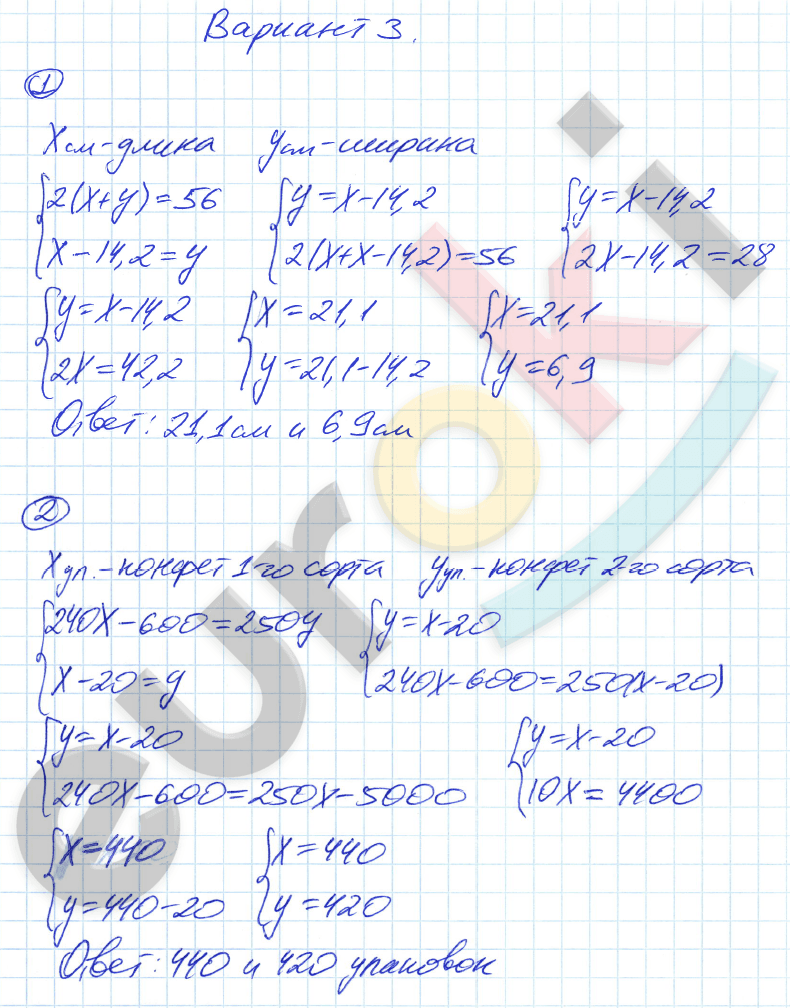 Вариант 3.
1
X см - длина y см - ширина
{2(x+y)=56 {y=x-14,2 {y=x-14,2
{x-14,2=y {2(x+x-14,2)=56 {2x-14,2=28
{y=x-14,2 {x=21,1 {x=21,1
{2x=42,2 {y=21,1-14,2 {y=6,9
Ответ: 21,1см и 6,9см
2
X уп. - конфет 1-го сорта y уп. - конфет 2-го сорта
{240x-600=250y {y=x-20
{x-20=y {240x-600=250(x-20)
{y=x-20 {y=x-20
{240x-600=250x-5000 {10x=4400
{x=440 {x=440
{y=440-20 {y=420
Ответ: 440 и 420 упаковок
euroki